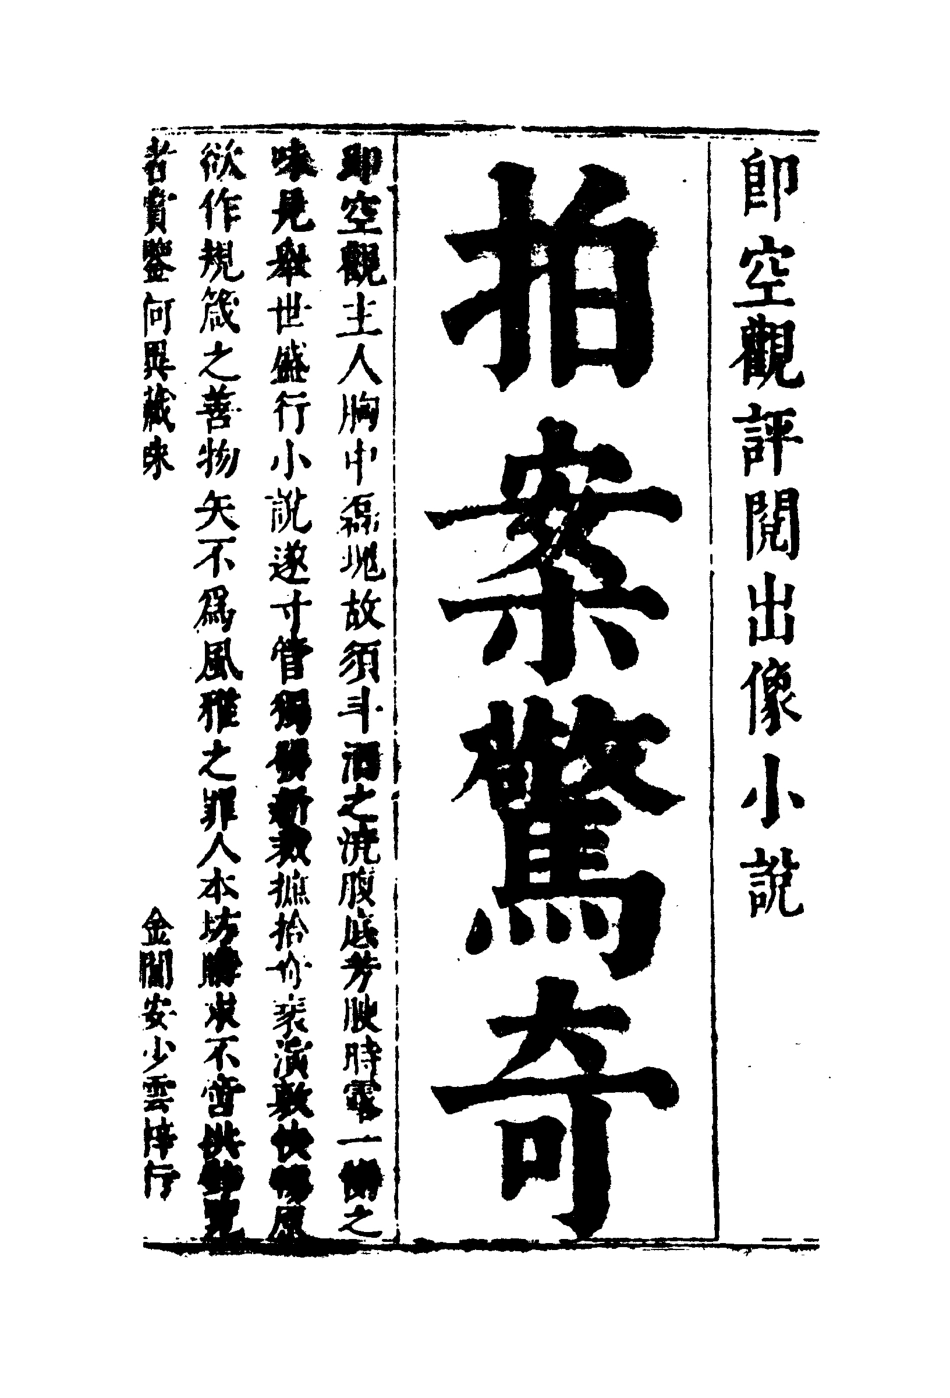 即空觀評閱出像小說
拍案驚奇
即空觀主人胸中磊塊故須斗酒之澆腹底芳腴時露一臠之
味見舉世盛行小說遂寸管獨發新裁摭拾奇袤演敷快暢原
欲作規箴之善物矢不爲風雅之罪人本坊購求不啻拱璧覽
者賞鑒何異藏珠
金閶安少雲梓行